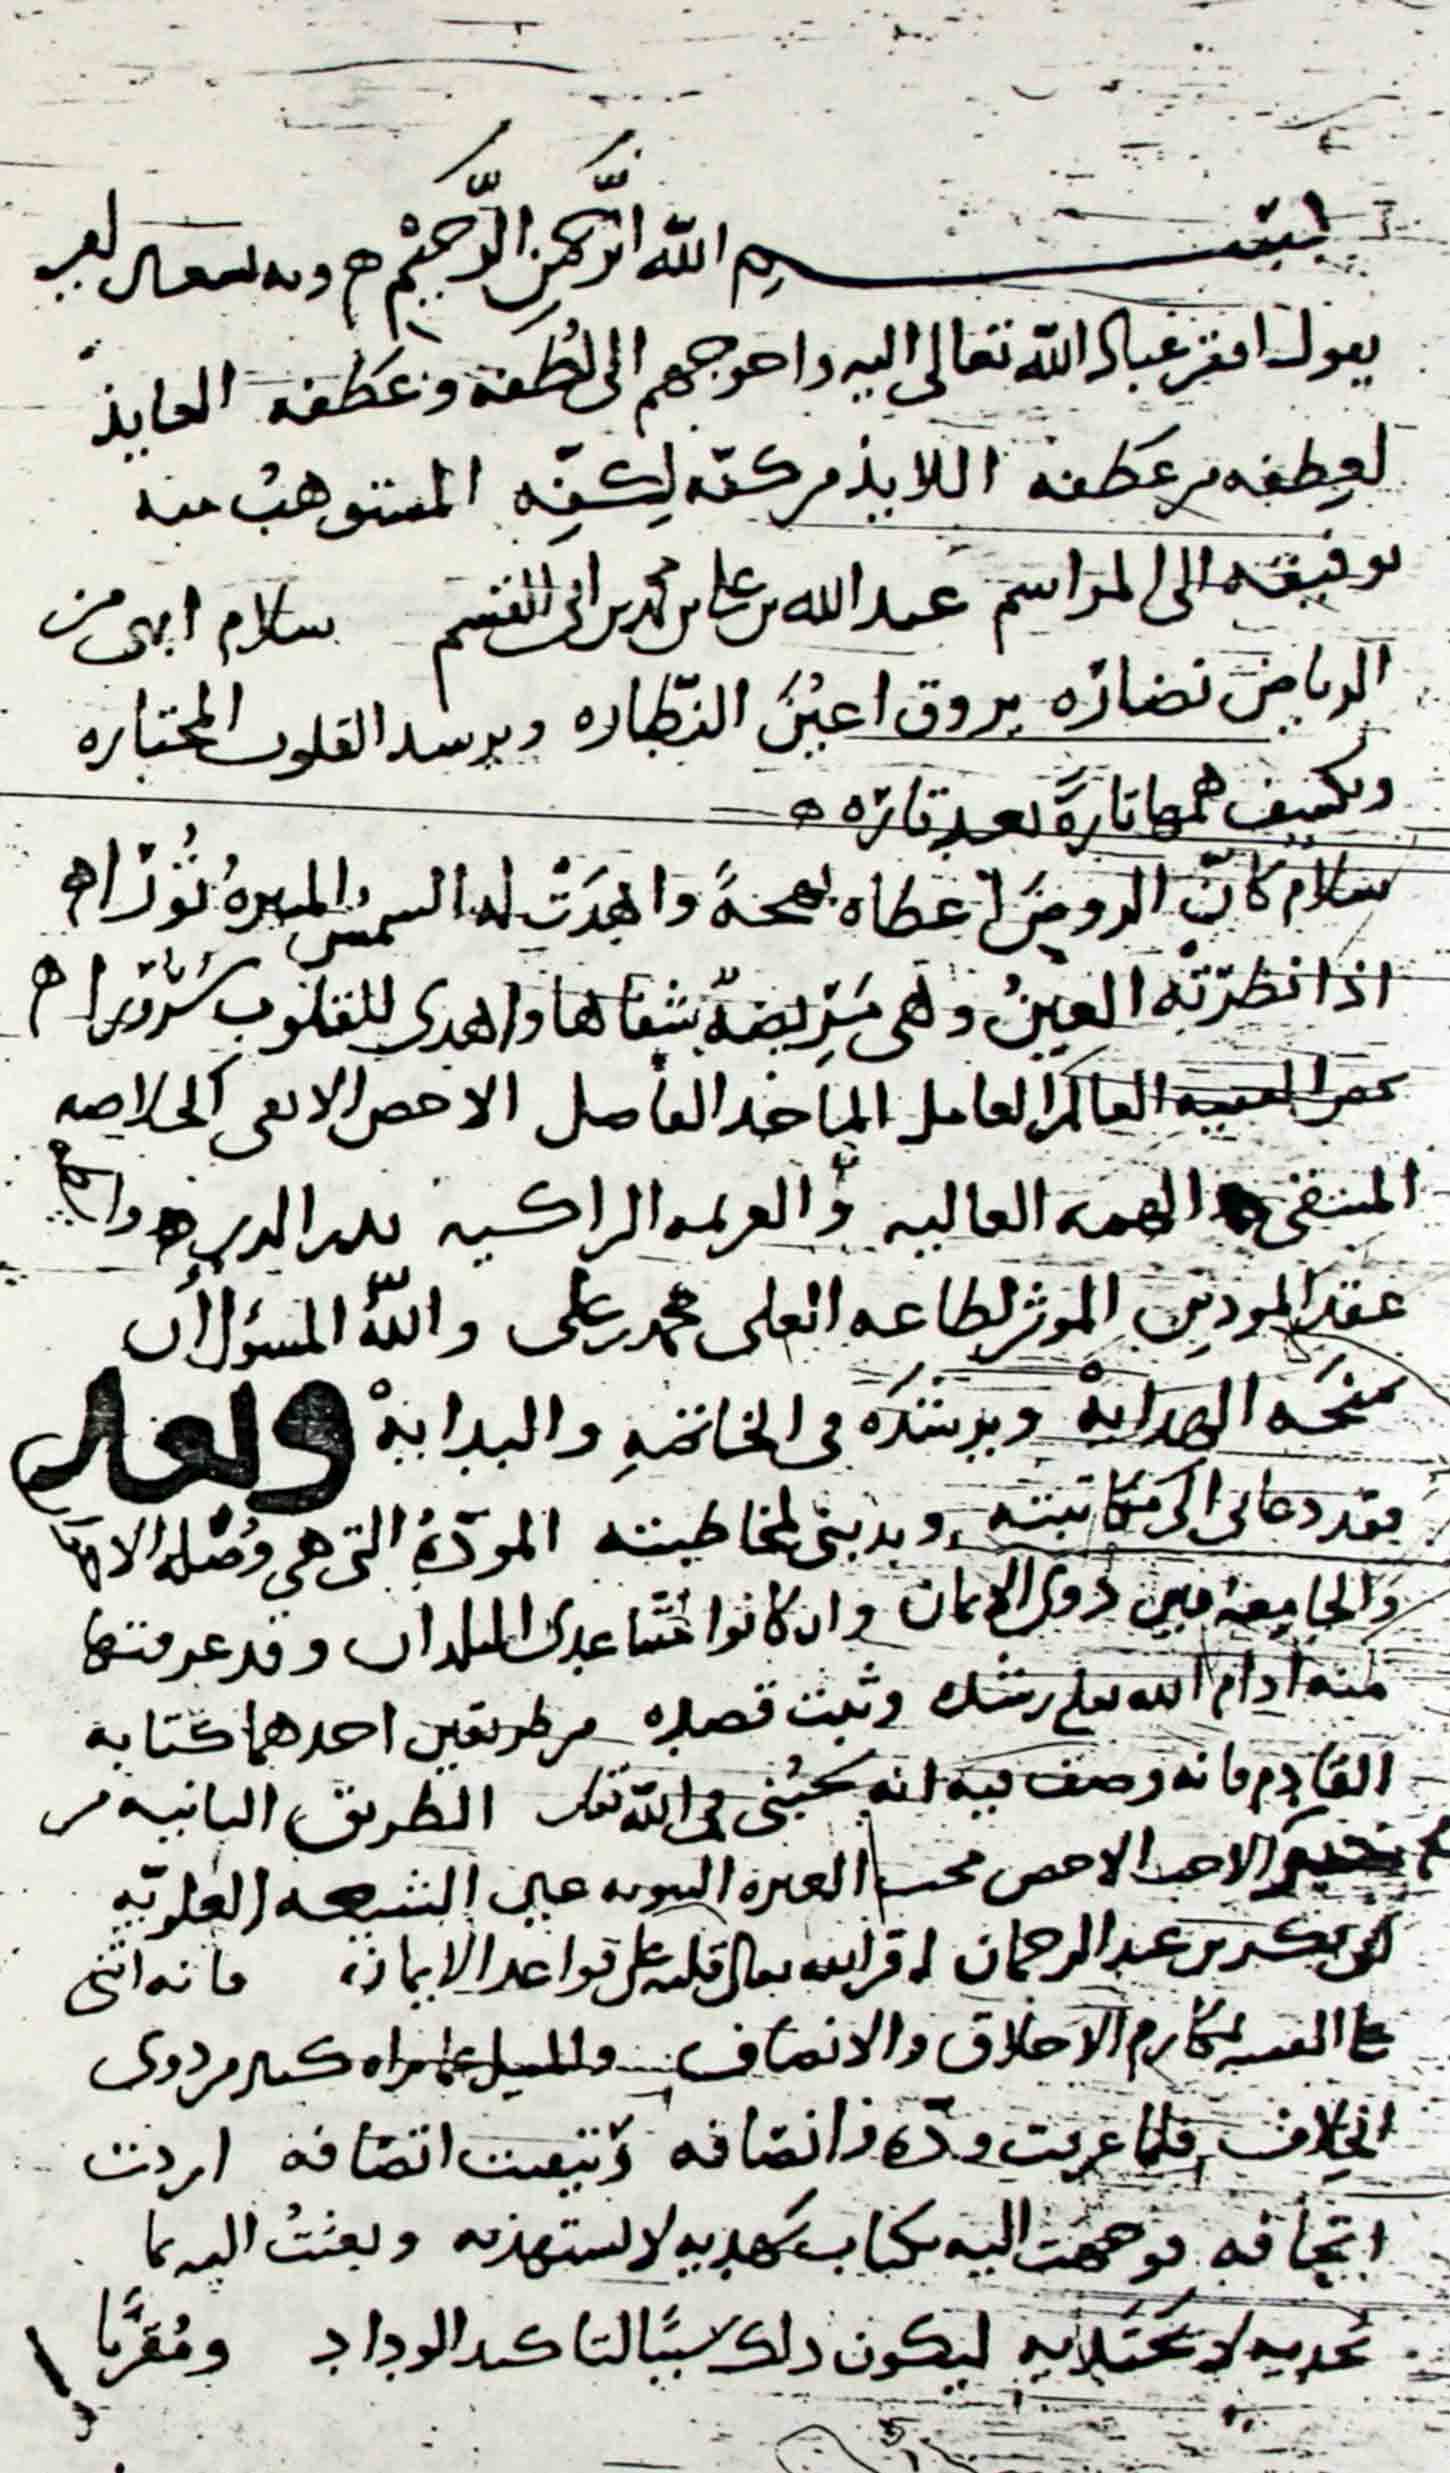 بسم الله الرحمن الرحيم وبه نستعين
يقول افقر عباد الله تعالى اليه واحوجهم الى لطفه وعطفه العايذ
لعطفه من عطفه اللايذ من كفه لكفه المستوهب منه
توفيقه الى المراسم عبد الله بن علي بن محمد بن ابي القسم سلام ابهى من
الرياض نضاره يروق اعين النظاره ويرشد القلوب المحتاره
ويكشف همها تارةً بعد تاره
سلام كانّ الروض اعطاه بهجةً واهدَتْ له الشمسُ المنيرهُ نُورَا
اذا نظرَتْه العينُ وهي مريضهٌ شفاها واهدى للقلوب سُرُورَا
يخص الفقيه العالم العامل الماجد الفاضل الاخص الاتقى الخلاصه
المنتقى الهمه العاليه والعزيمه الراكيه بدر الدين
عقد المودين الموثر لطاعه العلي محمد بن علي والله المسؤل ان
يمنحَه الهدايهْ ويرشدَه في الخاتمهِ والبدايهْ وبعد
فقد دعاني الى مكاتبته ويدبني لمخاطبته المودّهُ التي هي وُصْله
والجامِعهُ بين ذوي الايمان وان كانوا متباعدي البلدان وقد عرفتها
منه ادام الله تعالى رشده وثبت قصده من طريقين احدهما كتابه
القادم فانه وصف فيه انه يحبُني في الله تعالى الطريق الثانيه من
الاحب الاخص محب العتره النبويه عين الشيعه العلويّه
ابي بكر بن عبد الرحمان اقر الله تعالى قلبه على قواعد الايمان فانه اثنى
على الفقيه بمكارم الاخلاق والانصاف والميل عما يراه كثير من ذوي
الخلاف فلما عرفت ودّه وانصافه وتيقنت اتصافه اردت
اتحافه فوجهت اليه بكتاب يهديه لا يستهديه وبعثتُ اليه بما
يحذيه لا يحتذيه ليكون ذلك سببًا لتاكيد الوداد ومُقرِّبا